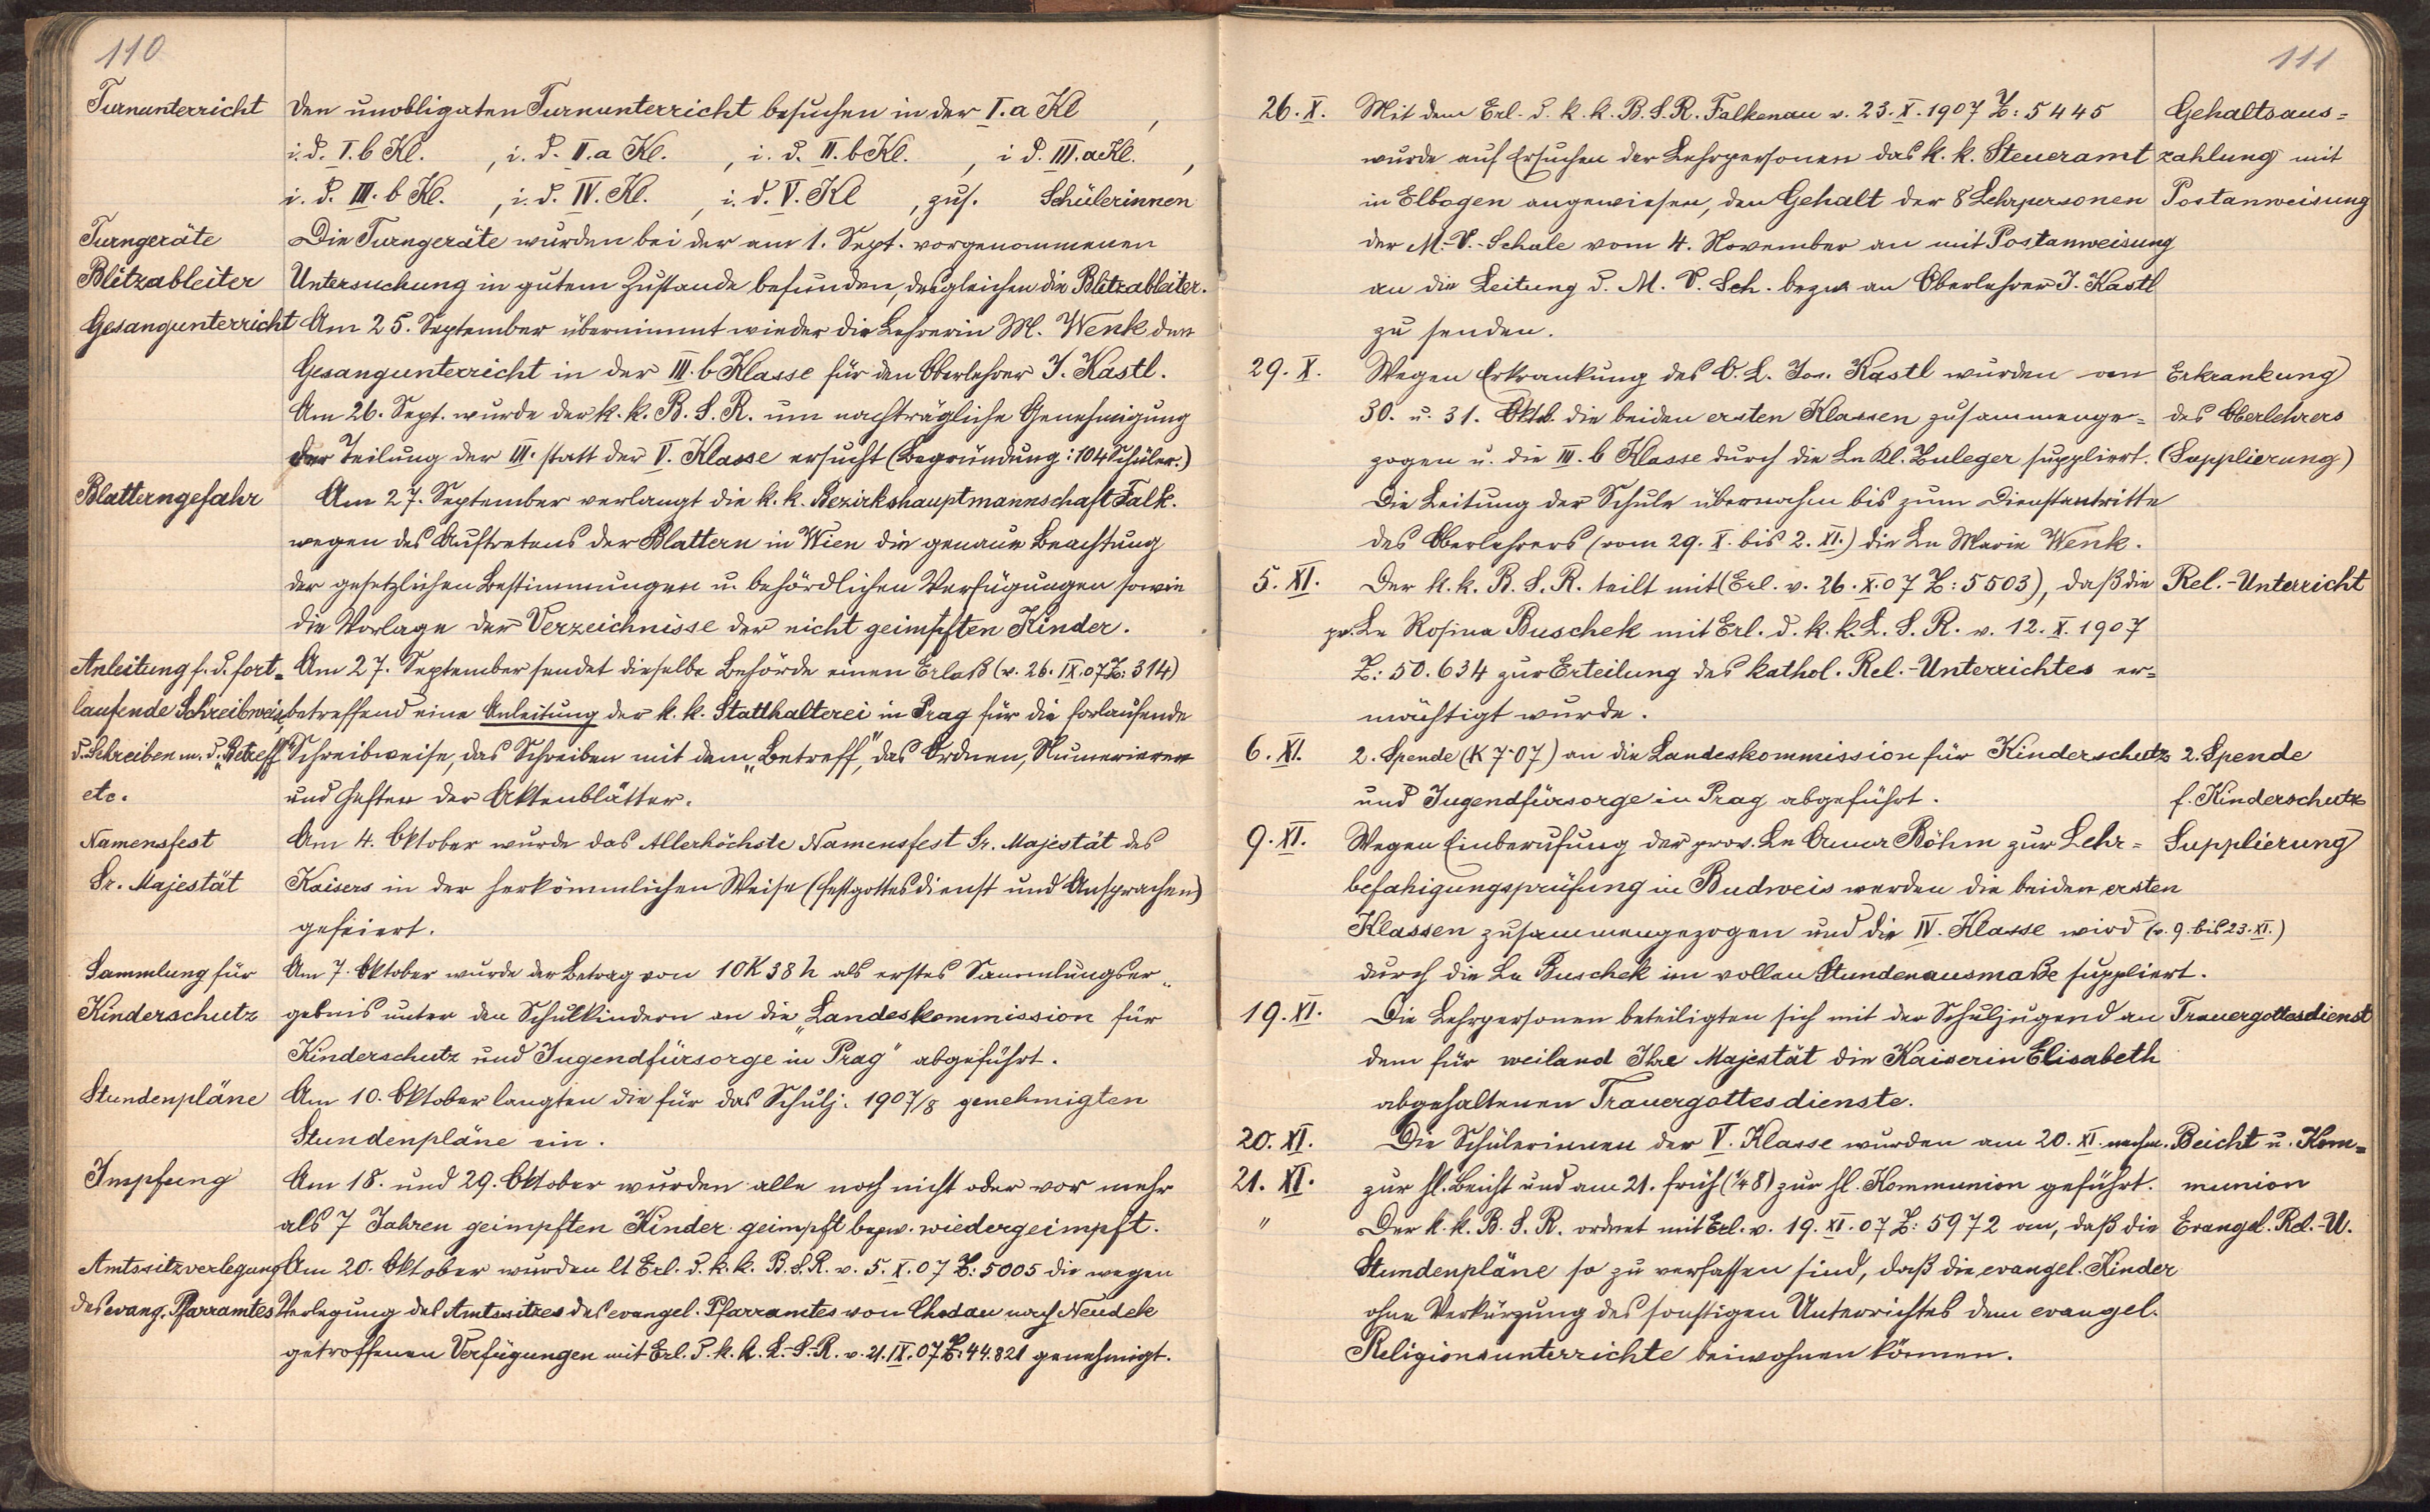 110
Turnunterricht Den unobligaten Turnunterricht besuchen in der I. a Kl ,
i. d. I. b Kl. , i. d. II. a Kl. , i. d. II. b Kl. , i d. III. a Kl. ,
i. d. III. b Kl. , i. d. IV. Kl. , i. d. V. Kl , zus. Schülerinnen
Turngeräte Die Turngeräte wurden bei der am 1. Sept. vorgenommenen
Blitzableiter Untersuchung in gutem Zustande befunden, desgleichen die Blitzableiter.
Gesangunterricht Am 25. September übernimmt wieder die Lehrerin M. Wenk den
Gesangunterricht in der III. b Klasse für den Oberlehrer J. Kastl.
Am 26. Sept. wurde der k. k. B. S. R. um nachträgliche Genehmigung
der Teilung der III. statt der V. Klasse ersucht (Begründung: 104 Schüler.)
Blatterngefahr Am 27. September verlangt die k. k. Bezirkshauptmannschaft Falk.
wegen des Auftretens der Blattern in Wien die genaue Beachtung
der gesetzlichen Bestimmungen u. behördlichen Verfügungen sowie
die Vorlage der Verzeichnisse der nicht geimpften Kinder.
Anleitung f. d. fort= Am 27. September sendet dieselbe Behörde einen Erlaß (v. 26. IX. 07 Z: 314)
laufende Schreibweis, betreffend eine Anleitung der k. k. Statthalterei in Prag für die forlaufende
d. Schreiben m. d. „Betreff" Schreibweise, das Schreiben mit dem „Betreff", das Ordnen, Numerieren
etc. und Heften der Aktenblätter.
Namensfest Am 4. Oktober wurde das Allerhöchste Namensfest Sr. Majestät des
Sr. Majestät Kaisers in der herkömmlichen Weise (Festgottesdienst und Ansprachen)
gefeiert.
Sammlung für Am 7. Oktober wurde der Betrag von 10 K 38 h als erstes Sammlungser„
Kinderschutz gebnis unter den Schulkindern an die „Landeskommission für
Kinderschutz und Jugendfürsorge in Prag" abgeführt.
Stundenpläne Am 10. Oktober langten die für das Schulj. 1907/8 genehmigten
Stundenpläne ein.
Impfung Am 18. und 29. Oktober wurden alle noch nicht oder vor mehr
als 7 Jahren geimpften Kinder geimpft bezw. wiedergeimpft.
Amtssitzverlegung Am 20. Oktober wurden lt Erl. d. k. k. B. S. R. v. 5. X. 07 Z: 5005 die wegen
des evang. Pfarramtes Verlegung des Amtssitzes des evangel. Pfarramtes von Chodau nach Neudek
getroffenen Verfügungen mit Erl. d. k. k. L.-S.-R. v. 21. IX. 07 Z: 44.821 genehmigt.
111
26. X. Mit dem Erl. d. k. k. B. S. R. Falkenau v. 23. X. 1907 Z: 5445 Gehaltsaus=
wurde auf Ersuchen der Lehrpersonen das k. k. Steueramt zahlung mit
in Elbogen angewiesen, den Gehalt der 8 Lehrpersonen Postanweisung
der M.-V.-Schule vom 4. November an mit Postanweisung
an die Leitung d. M. V. Sch. bezw an Oberlehrer J. Kastl
zu senden.
29. X. Wegen Erkrankung des O. L. Jos. Kastl wurden am Erkrankung
30. u. 31. Oktob. die beiden ersten Klassen zusammenge= des Oberlehrers
zogen u. die III. b Klasse durch die Ln Kl. Zuleger suppliert. (Supplierung)
Die Leitung der Schule übernahm bis zum Dienstantritte
des Oberlehrers (vom 29. X. bis 2. XI.) die Ln Marie Wenk.
5. XI. Der k. k. B. S. R. teilt mit (Erl. v. 26. X. 07 Z: 5503), daß die Rel.-Unterricht
pr. Ln Rosina Buschek mit Erl. d. k. k. L. S. R. v. 12. X. 1907
Z: 50.634 zur Erteilung des kathol. Rel.-Unterrichtes er=
mächtigt wurde.
6. XI. 2. Spende (K 7·07) an die Landeskommission für Kinderschutz 2. Spende
und Jugendfürsorge in Prag abgeführt. f. Kinderschutz
9. XI. Wegen Einberufung der prov. Ln Anna Böhm zur Lehr= Supplierung
befahigungsprüfung in Budweis werden die beiden ersten
Klassen zusammengezogen und die IV. Klasse wird (v. 9. bis 23. XI.)
durch die Ln Buschek im vollen Stundenausmaße suppliert.
19. XI. Die Lehrpersonen beteiligten sich mit der Schuljugend an Trauergottesdienst
dem für weiland Ihre Majestät die Kaiserin Elisabeth
abgehaltenen Trauergottesdienste.
20. XI. Die Schülerinnen der V. Klasse wurden am 20. XI. nachm. Beicht u. Kom=
21. XI. zur hl. Beicht und am 21. früh (1/4 8) zur hl. Kommunion geführt. munion
" Der k. k. B. S. R. ordnet mit Erl. v. 19. XI. 07 Z: 5972 an, daß die Evangel. Rel.-U.
Stundenpläne so zu verfassen sind, daß die evangel. Kinder
ohne Verkürzung des sonstigen Unterrichtes dem evangel.
Religionsunterrichte beiwohnen können.